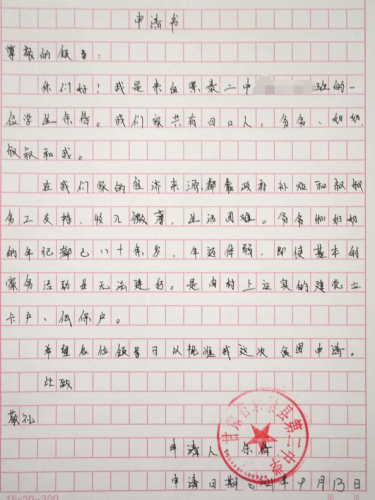 申请书
尊敬的领导：
你们好！我是来自景泰二中班的一
位学生保精。我们家共有四口人，爷爷、奶奶
叔叔和我。
在我们家的经济来源都靠政府补贴和叔叔
务工支持，收入微薄，生活困难。爷爷和奶奶
的年纪都已八十余岁，年迈体弱，即使基本的
家务活动是无法进行，是南村上运实的建党立
卡户、低保户。
希望各位领导可以批准我这次贫困申请。
此致
敬礼
申请人：保
甘肃省景泰县第二中学
申请日期：年9月13日
15×20=300
第 页